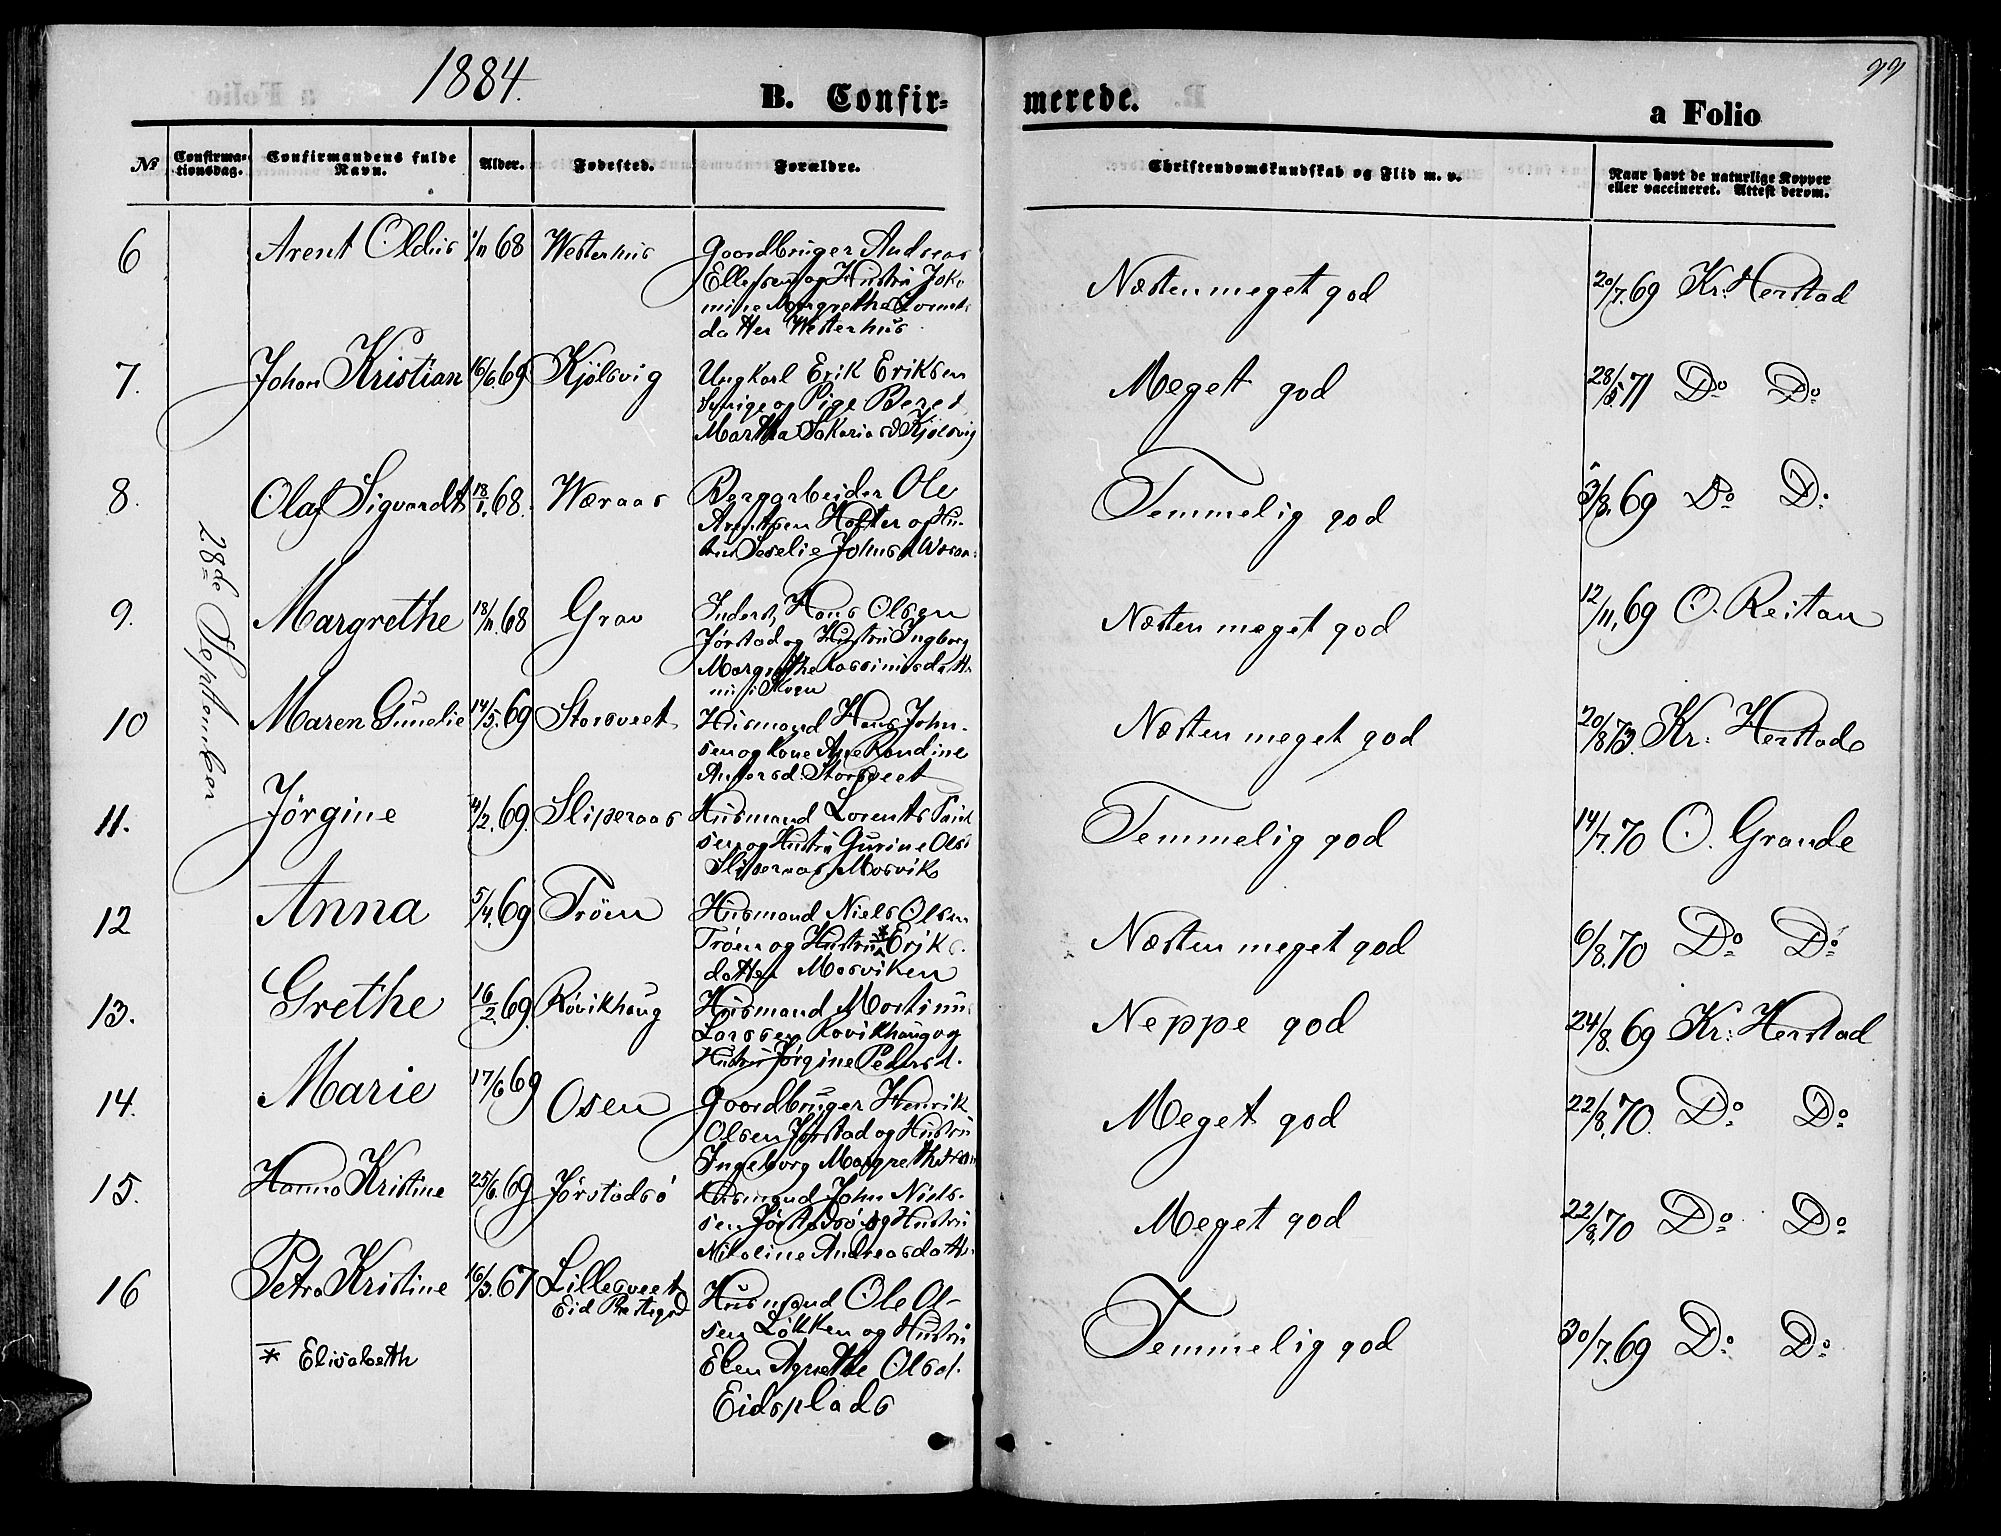 1884.
B. Confir-
merede.
a Folio
99
№
Confirma-
tionsdag.
Confirmandens fulde
Navn.
Alder.
Fødested.
Forældre.
Christendomskundskab og Flid m. v.
Naar havt de naturlige Kopper
eller vaccineret. Attest derom.
28de September
6 Arent Oldus 1/11 68 Westerhus Gaardbruger Andreas
Ellefsen og Hustru Joko-
mine Margrethe Lorents-
datter Westerhus.
Næsten meget god 20/7.69 Kr: Herstad
7. Johan Kristian 16/6 69 Kjølsvig Ungkarl Erik Eriksen
Sverige og Pige Beret
Martha Sakariasd Kjølsvig
Meget god 28/5.71 Do Do
8. Olaf Sigvardt 18/1.68. Wæraas Bergarbeider Ole
Arentsen Holter og Hu-
stru Seselie Johnsd
Temmelig god 3/8.69 Do D:
9. Margrethe 18/11.68 Grav Inderst, Hans Olsen
Jørstad og Hustru Ingborg
Margrethe Rasimusdatt.
Næsten meget god 12/11.69 O. Reitan
10 Maren Gunelie 14/5.69 Storsveet Husmand Hans John-
sen og Kone Ane Randine
Andersd: Storsveet
Næsten meget god 20/8 73. Kr: Herstad
11. Jørgine 4/2.69. Sliperaas Husmand Lorents Paul
sen og Hustru Gurine Ols
Sliperaas, Mosvik
Temmelig god 14/7.70 O. Grande
12 Anna 5/4.69 Trøen Husmand Niels Olsen
Trøen og Hustru * Eriks
datter Mosviken
Næsten meget god 6/8.70 Do Do
13. Grethe 16/2.69. Røvikhaug Husmand Mortinus
Larssen Røvikhaug og
Hustru Jørgine Pedersd.
Neppe god 24/8.69 Kr: Herstad
14. Marie 17/6 69 Osen Gaardbruger Henrik
Olsen Jørstad og Hustru
Ingeborg Margrethe
Meget god 22/8.70. Do Do
15. Hanna Kristine 25/6.69 Jørstadsø Husmand John Niels-
sen Jørstadsø og Hustru
Nikoline Andreasdatt.
Meget god 22/8.70 Do Do
16 Petra Kristine 16/3.67 Lillesveet
Eid Prstegd
Husmand Ole Ol-
sen Løkken og Hustru
Elen Agnethe Olsd.
Eidsplads
Temmelig god 30/7.69 Do Do
* Elisabeth